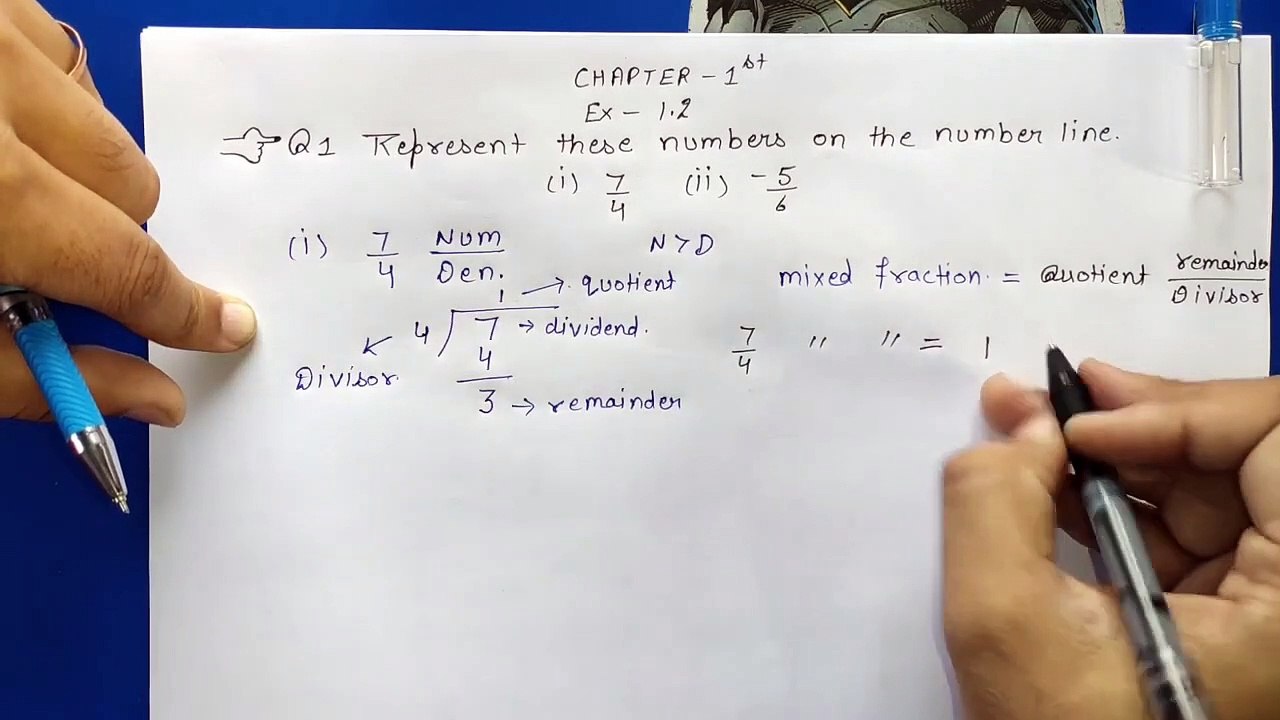 CHAPTER - 1st
Ex - 1.2
Q1 Represent these numbers on the number line.
(i) 7/4 (ii) -5/6
(i) 7/4 Num/Den. N > D
1 → quotient
4 7 → dividend.
Divisor.
4
3 → remainder
mixed fraction. = Quotient remainder/Divisor
7/4 " " = 1